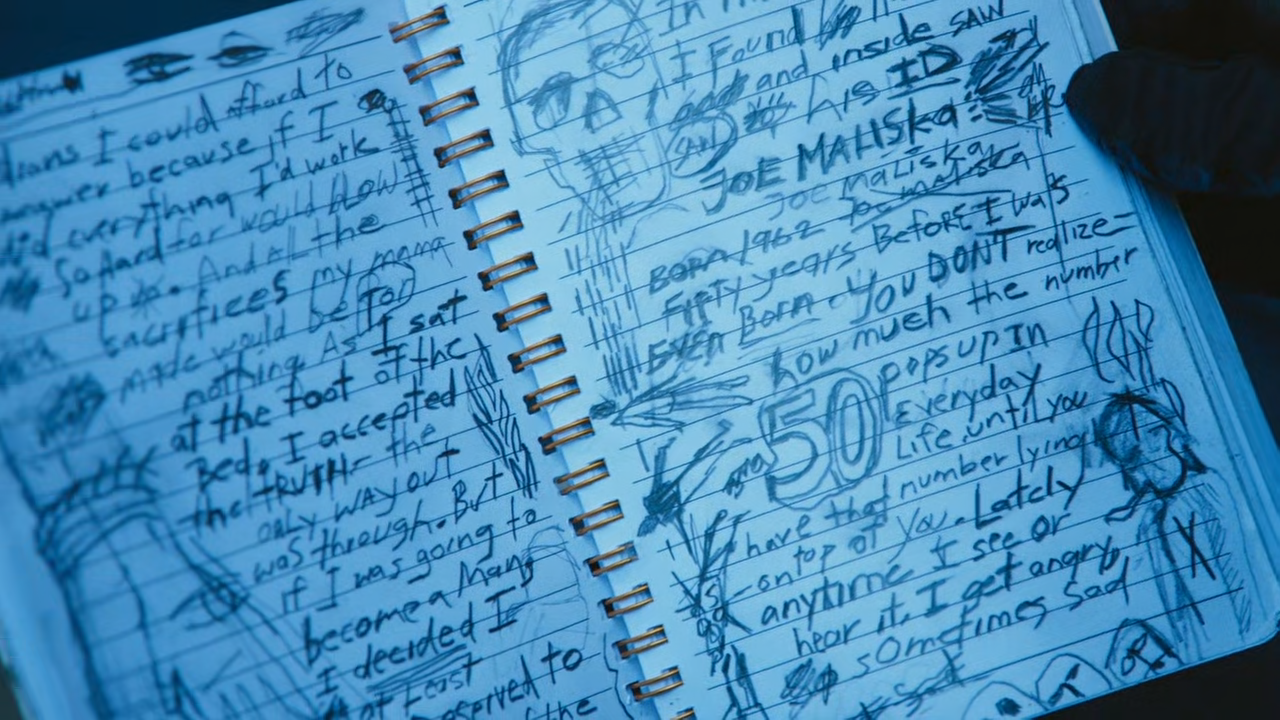 dians I could afford to
answer because if I
did everything I'd work
so hard for would blow
up. And all the
sacrifices my mama
made would be for
nothing. As I sat
at the foot of the
Bed, I accepted
the TRUTH- the
only way out
was through. But
if I was going to
become a Man,
I decided I
at least
deserved to
the
In
I Found
and inside SAW
his ID
JOE MALISKa:
Joe Maliska
BORN 1962
Fifty years BeforE I was
EvEn Born. You DON'T realize
how much the number
50 pops up in
Everyday
Life until you
have that number lying
on top of you. Lately
anytime I see or
hear it, I get angry,
sometimes sad